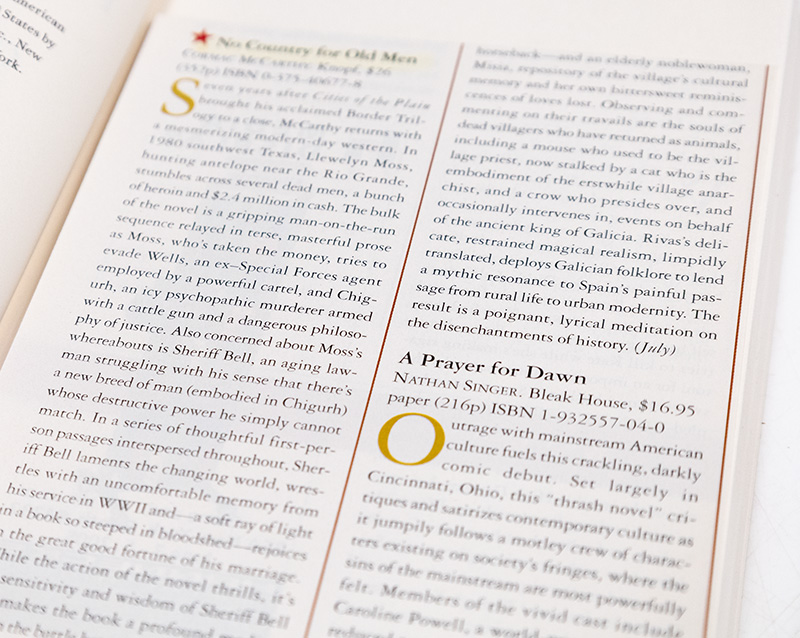 American
States by
New
York.
No Country for Old Men
CORMAC MCCARTHY. Knopf, $26
(352p) ISBN 0-375-40677-8
Seven years after Cities of the Plain
brought his acclaimed Border Tril-
ogy to a close, McCarthy returns with
a mesmerizing modern-day western. In
1980 southwest Texas, Llewelyn Moss,
hunting antelope near the Rio Grande,
stumbles across several dead men, a bunch
of heroin and $2.4 million in cash. The bulk
of the novel is a gripping man-on-the-run
sequence relayed in terse, masterful prose
as Moss, who's taken the money, tries to
evade Wells, an ex–Special Forces agent
employed by a powerful cartel, and Chig-
urh, an icy psychopathic murderer armed
with a cattle gun and a dangerous philoso-
phy of justice. Also concerned about Moss's
whereabouts is Sheriff Bell, an aging law-
man struggling with his sense that there's
a new breed of man (embodied in Chigurh)
whose destructive power he simply cannot
match. In a series of thoughtful first-per-
son passages interspersed throughout, Sher-
iff Bell laments the changing world, wres-
tles with an uncomfortable memory from
his service in WWII and—a soft ray of light
in a book so steeped in bloodshed—rejoices
the great good fortune of his marriage.
While the action of the novel thrills, it's
sensitivity and wisdom of Sheriff Bell
makes the book a profound
the battle
horseback—and an elderly noblewoman,
Misia, repository of the village's cultural
memory and her own bittersweet reminis-
cences of loves lost. Observing and com-
menting on their travails are the souls of
dead villagers who have returned as animals,
including a mouse who used to be the vil-
lage priest, now stalked by a cat who is the
embodiment of the erstwhile village anar-
chist, and a crow who presides over, and
occasionally intervenes in, events on behalf
of the ancient king of Galicia. Rivas's deli-
cate, restrained magical realism, limpidly
translated, deploys Galician folklore to lend
a mythic resonance to Spain's painful pas-
sage from rural life to urban modernity. The
result is a poignant, lyrical meditation on
the disenchantments of history. (July)
A Prayer for Dawn
NATHAN SINGER. Bleak House, $16.95
paper (216p) ISBN 1-932557-04-0
Outrage with mainstream American
culture fuels this crackling, darkly
comic debut. Set largely in
Cincinnati, Ohio, this "thrash novel" cri-
tiques and satirizes contemporary culture as
it jumpily follows a motley crew of charac-
ters existing on society's fringes, where the
sins of the mainstream are most powerfully
felt. Members of the vivid cast include
Caroline Powell, a world